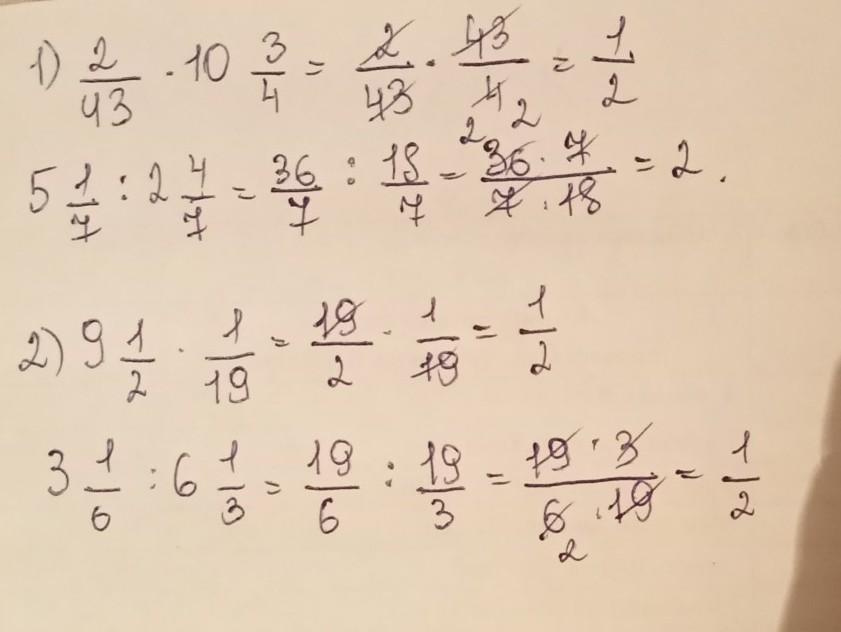 1) 2/43 · 10 3/4 = 2/43 · 43/4 2 = 1/2
5 1/7 : 2 4/7 = 36/7 : 18/7 = 2 36 · 7/7 · 18 = 2.
2) 9 1/2 · 1/19 = 19/2 · 1/19 = 1/2
3 1/6 : 6 1/3 = 19/6 : 19/3 = 19 · 3/6 2 · 19 = 1/2